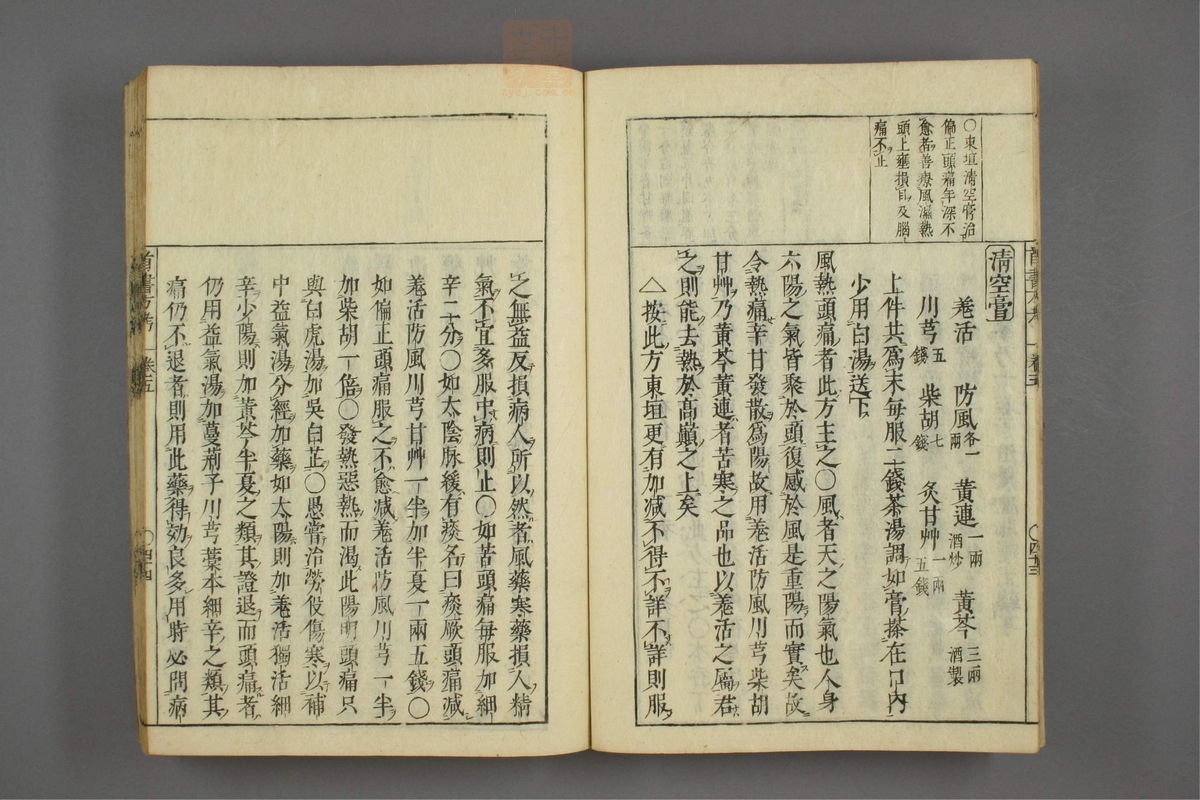 ○東垣清空膏治
偏正頭痛年深不
愈者善療風濕熱
頭上壅損目及腦
痛不止
清空膏
羗活 防風各一兩 黃連一兩酒炒 黃芩三兩酒製
川芎五錢 柴胡七錢 炙甘艸一兩五錢
上件共爲末每服二錢茶湯調如膏搽在口内
少用白湯送下
風熱頭痛者此方主之○風者天之陽氣也人身
六陽之氣皆聚於頭復感於風是重陽而實矣故
令熱痛辛甘發散爲陽故用羗活防風川芎柴胡
甘艸乃黃芩黃連者苦寒之品也以羗活之屬君
之則能去熱於高巔之上矣
△按此方東垣更有加减不得不詳不詳則服
之無益反損病人所以然者風藥寒藥損人精
氣不宜多服中病則止○如苦頭痛每服加細
辛二分○如太陰脉緩有痰名曰痰厥頭痛减
羗活防風川芎甘艸一半加半夏一兩五錢○
如偏正頭痛服之不愈减羗活防風川芎一半
加柴胡一倍○發熱惡熱而渴此陽明頭痛只
與白虎湯加吳白芷○愚嘗治勞役傷寒以補
中益氣湯分經加藥如太陽則加羗活獨活細
辛少陽則加黃芩半夏之類其證退而頭痛者
仍用益氣湯加蔓荊子川芎藁本細辛之類其
痛仍不退者則用此藥得効良多用時必問病
首書方考 卷五
○四十四
○四十三